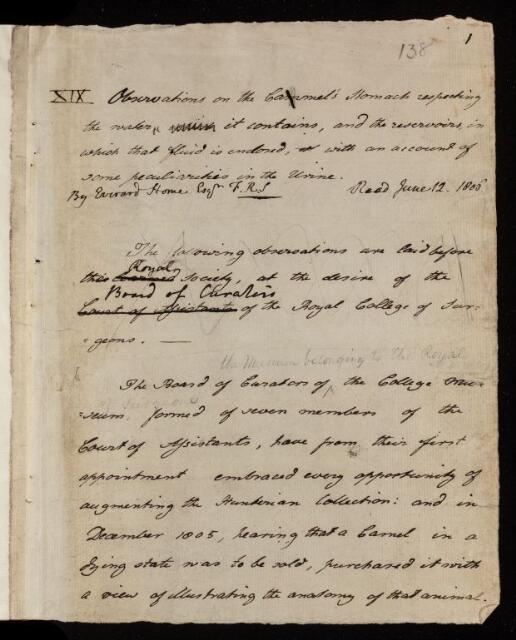 138
1
XIX Observations on the Cammel's Stomach respecting
the water, which it contains, and the reservoirs, in
which that fluid is enclosed, & with an account of
some peculiarities in the Urine.
By Everard Home Esqr. F.R.S Read June 12. 1806
The following observations are laid before
Royal
this learned Society, at the desire of the
Board of Curators
Court of Assistants of the Royal College of Sur-
-geons. —
the Museum belonging to the Royal
The Board of Curators of the College Mu-
of Surgeons
-seum, formed of seven members of the
Court of Assistants, have from their first
appointment embraced every opportunity of
augmenting the Hunterian Collection: and in
December 1805, hearing that a Camel in a
dying state was to be sold, purchased it with
a view of illustrating the anatomy of that animal.